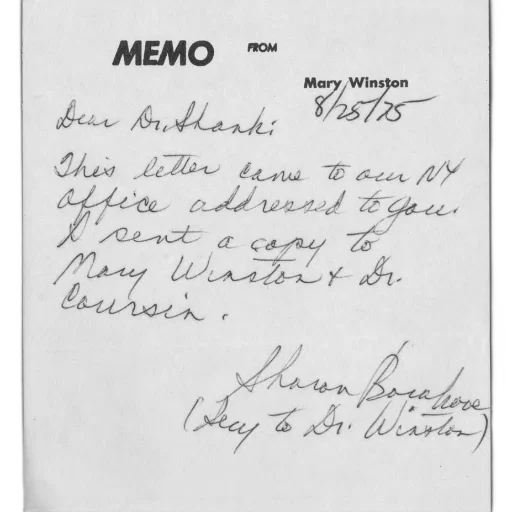 MEMO FROM
Mary Winston
8/25/75
Dear Dr. Shanki:
This letter came to our NY
office addressed to you.
I sent a copy to
Mary Winston & Dr.
Coursin.
Sharon
(Secy to Dr. Winston)